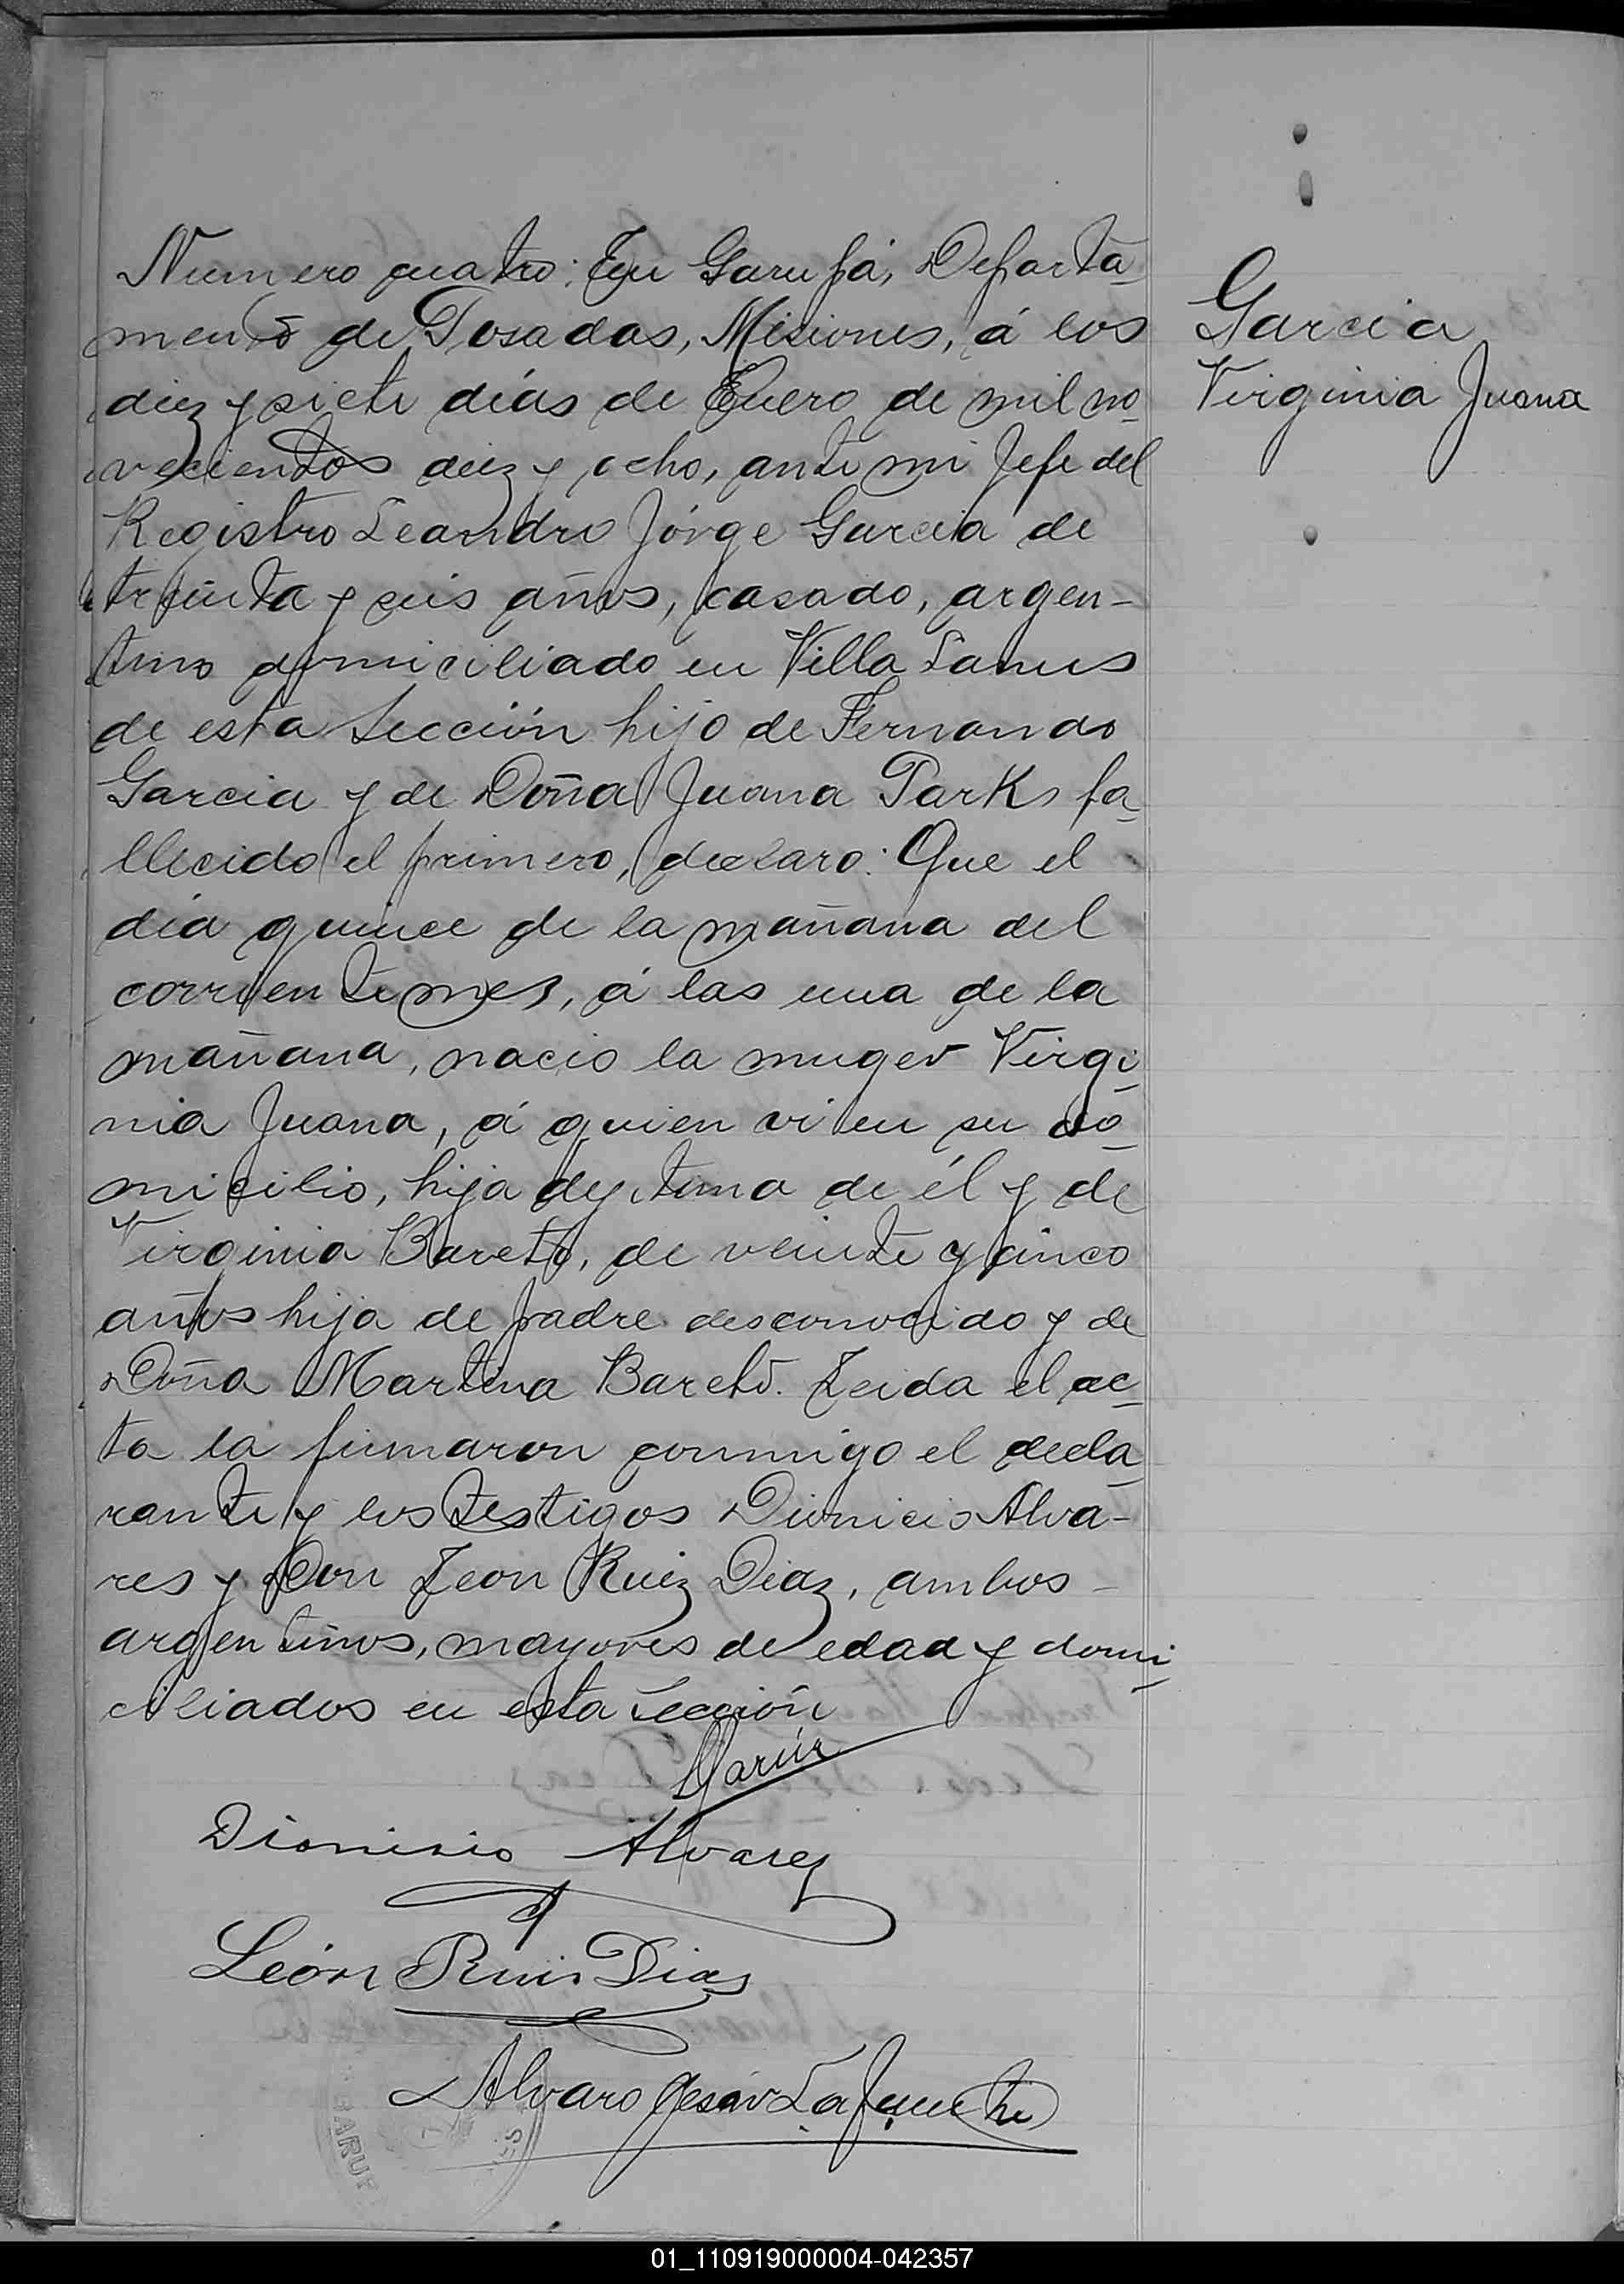 Numero cuatro: En Garupá, Departa-
mento de Posadas, Misiones, á los
diez y siete días de Enero de mil no-
vecientos diez y ocho, ante mi Jefe del
Registro Leandro Jórge Garcia de
treinta y seis años, casado, argen-
tino domiciliado en Villa Lanus
de esta Sección hijo de Fernando
Garcia y de Doña Juana Parks fa-
llecido el primero, declaro: Que el
día quince de la mañana del
corriente mes, á las una de la
mañana, nacio la muger Virgi-
nia Juana, á quien vi en su do-
micilio, hija de él y de
Virginia Bareto, de veinte y cinco
años hija de padre desconocido y de
Doña Martina Bareto. Leida el ac-
ta la firmaron conmigo el decla-
rante y los testigos Dionicio Alva-
res y Don Leon Ruiz Diaz, ambos
argentinos, mayores de edad y domi-
ciliados en esta Sección
Dionisio Alvarez
León Ruis Dias
Alvaro
GARUP
Garcia
Virginia Juana
01_110919000004-042357